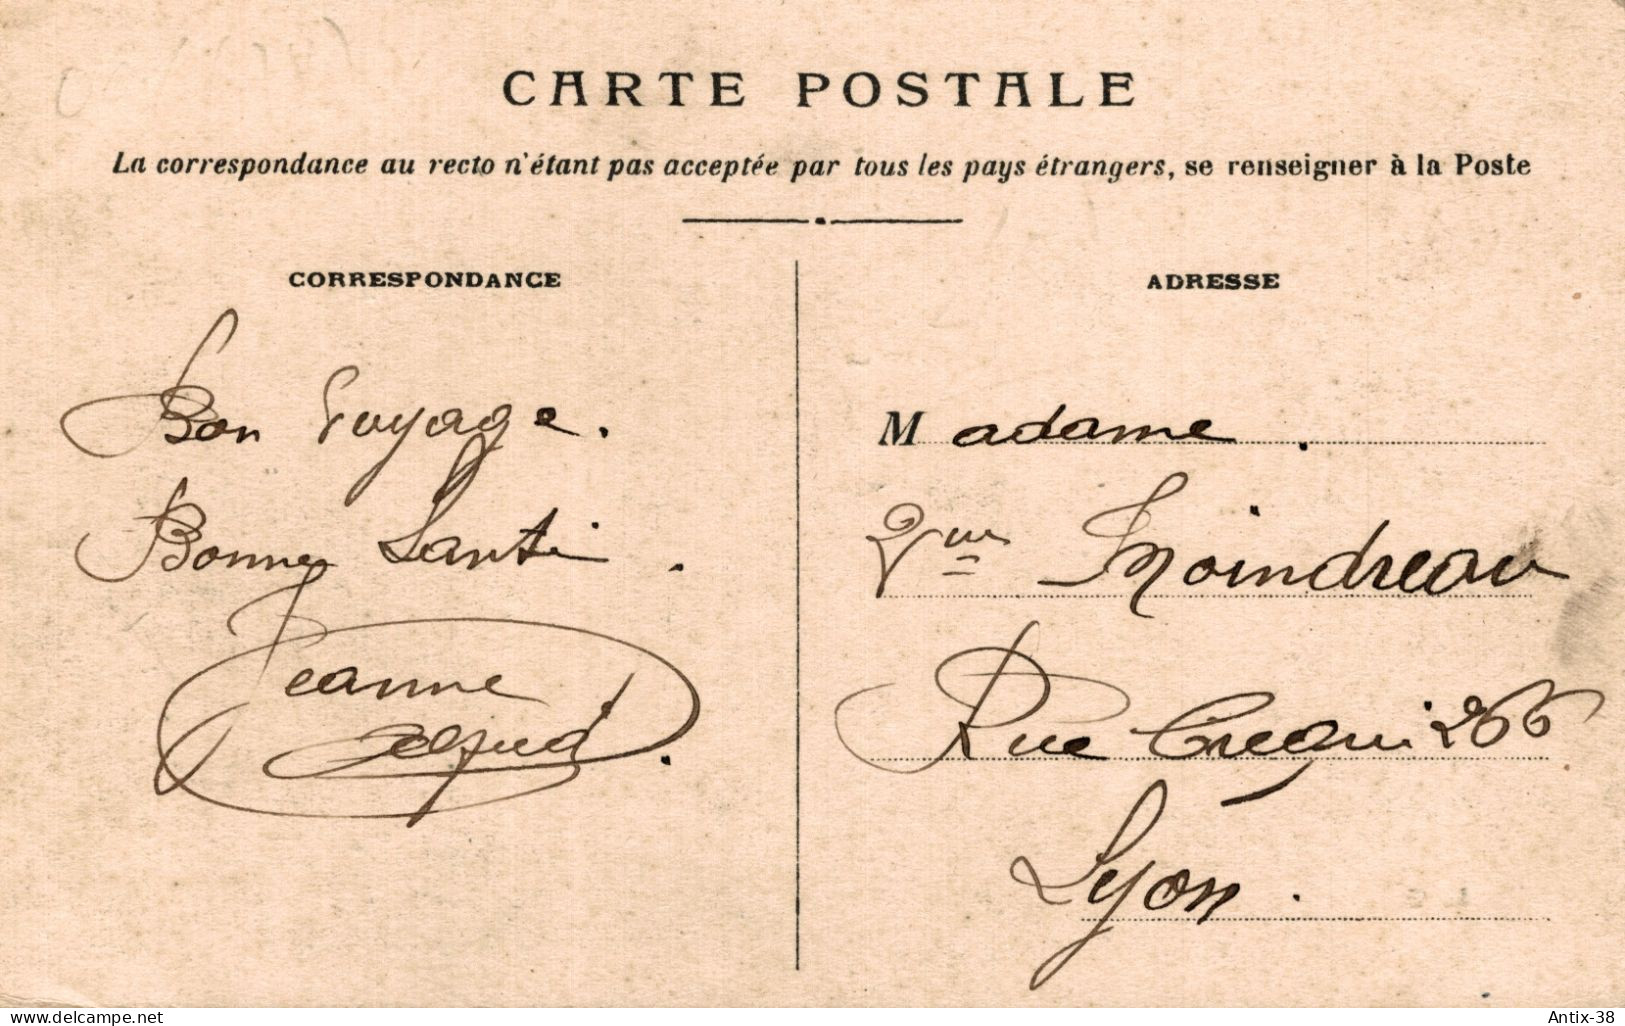 CARTE POSTALE
La correspondance au recto n'étant pas acceptée par tous les pays étrangers, se renseigner à la Poste
CORRESPONDANCE
Bon Voyage.
Bonne Santé.
Jeanne
ADRESSE
Madame.
Vve Moindreau
Rue Créqui 266
Lyon.
delcampe.net
Antix-38